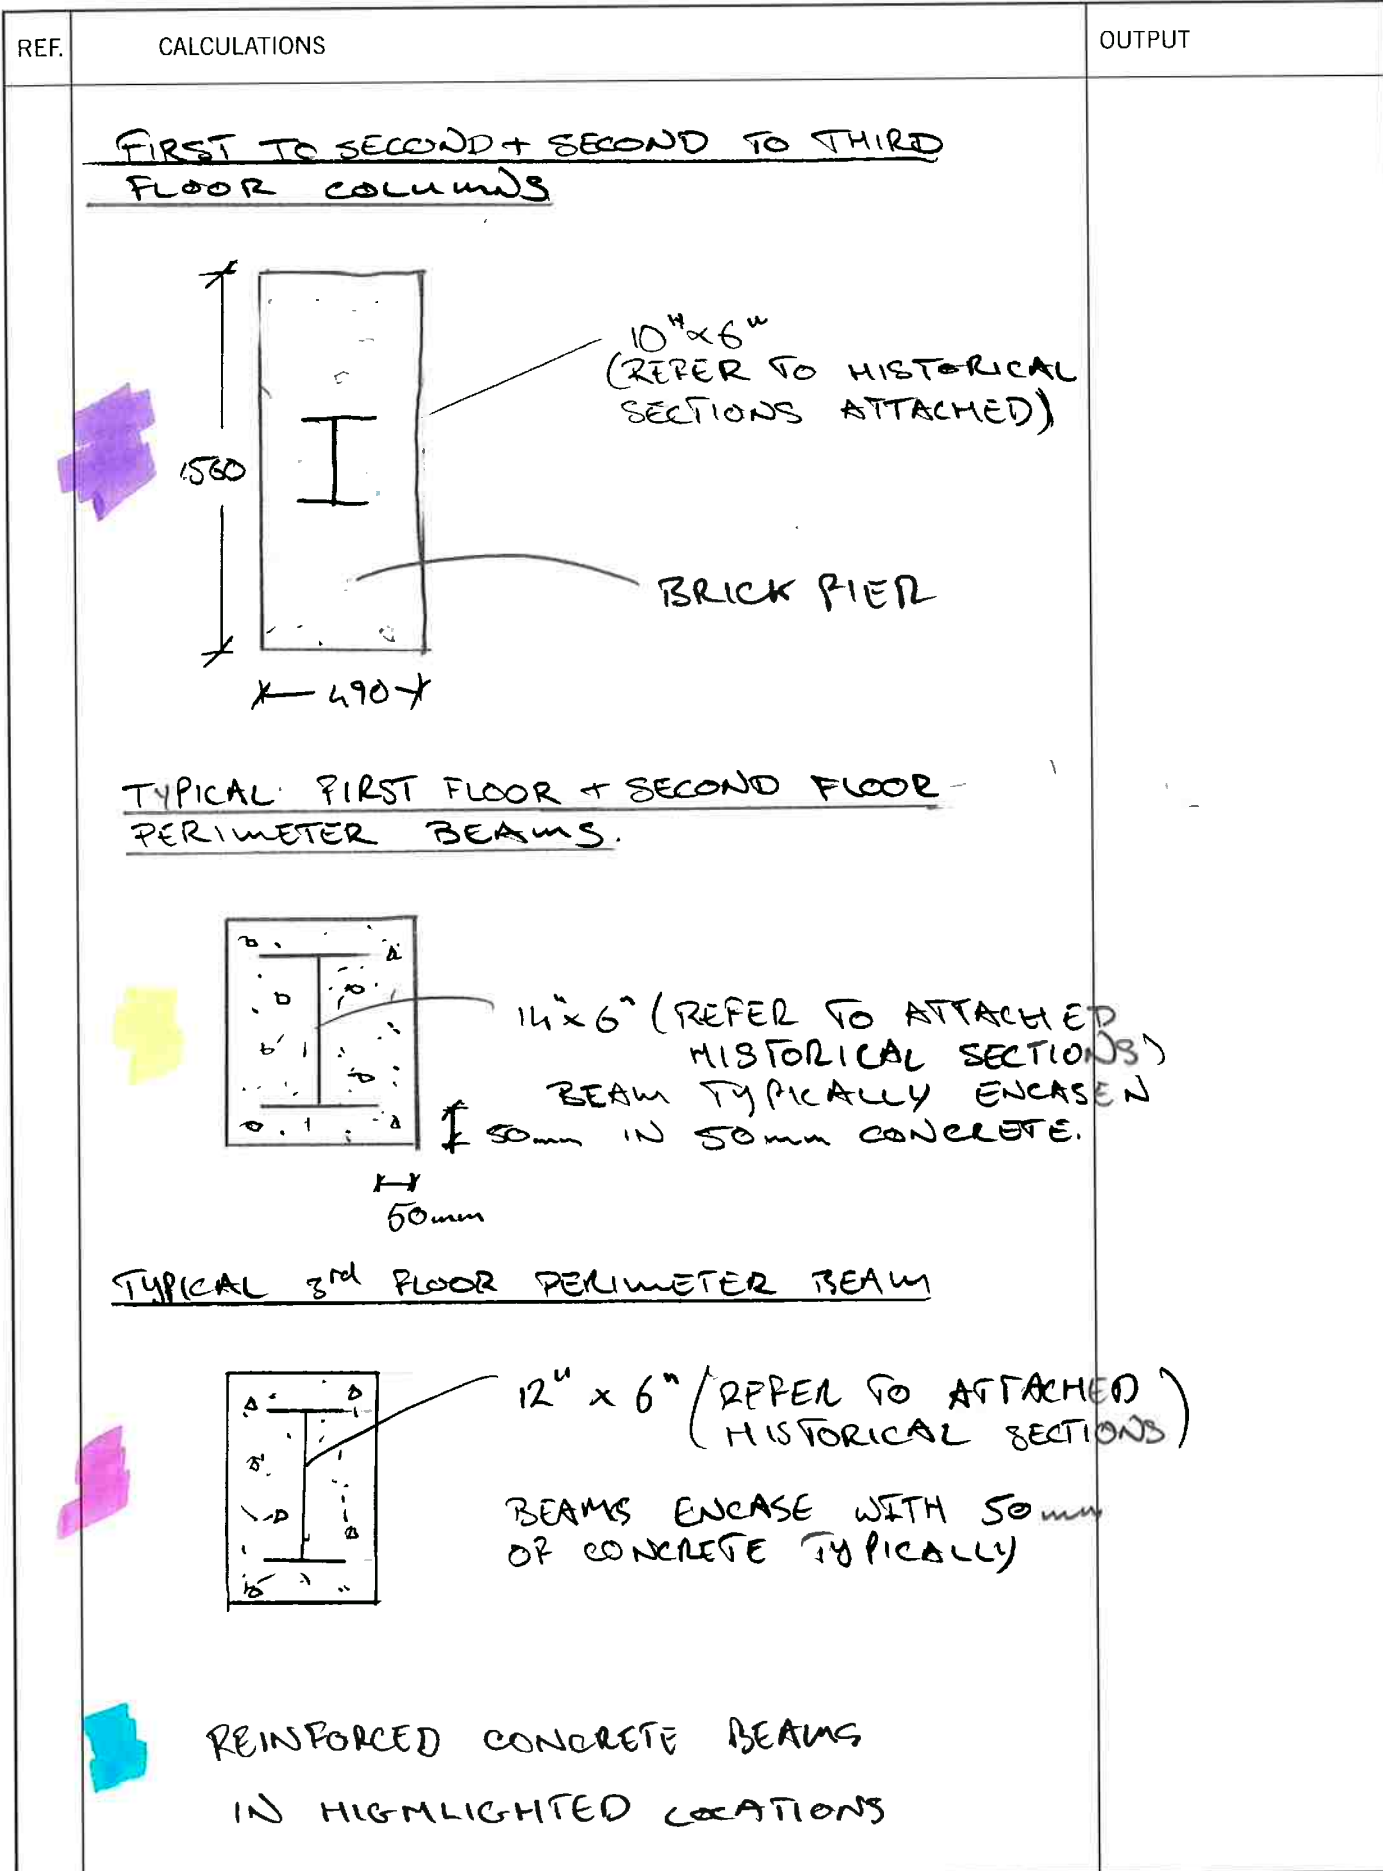 REF.
CALCULATIONS
OUTPUT
FIRST TO SECOND + SECOND TO THIRD
FLOOR COLUMNS
10" x 6"
(REFER TO HISTORICAL
SECTIONS ATTACHED)
BRICK PIER
490
TYPICAL FIRST FLOOR + SECOND FLOOR
PERIMETER BEAMS.
14" x 6" (REFER TO ATTACHED
HISTORICAL SECTIONS)
BEAM TYPICALLY ENCASEN
50mm IN 50mm CONCRETE.
50mm
TYPICAL 3rd FLOOR PERIMETER BEAM
12" x 6" (REFER TO ATTACHED
HISTORICAL SECTIONS)
BEAMS ENCASE WITH 50mm
OF CONCRETE TYPICALLY
REINFORCED CONCRETE BEAMS
IN HIGHLIGHTED LOCATIONS